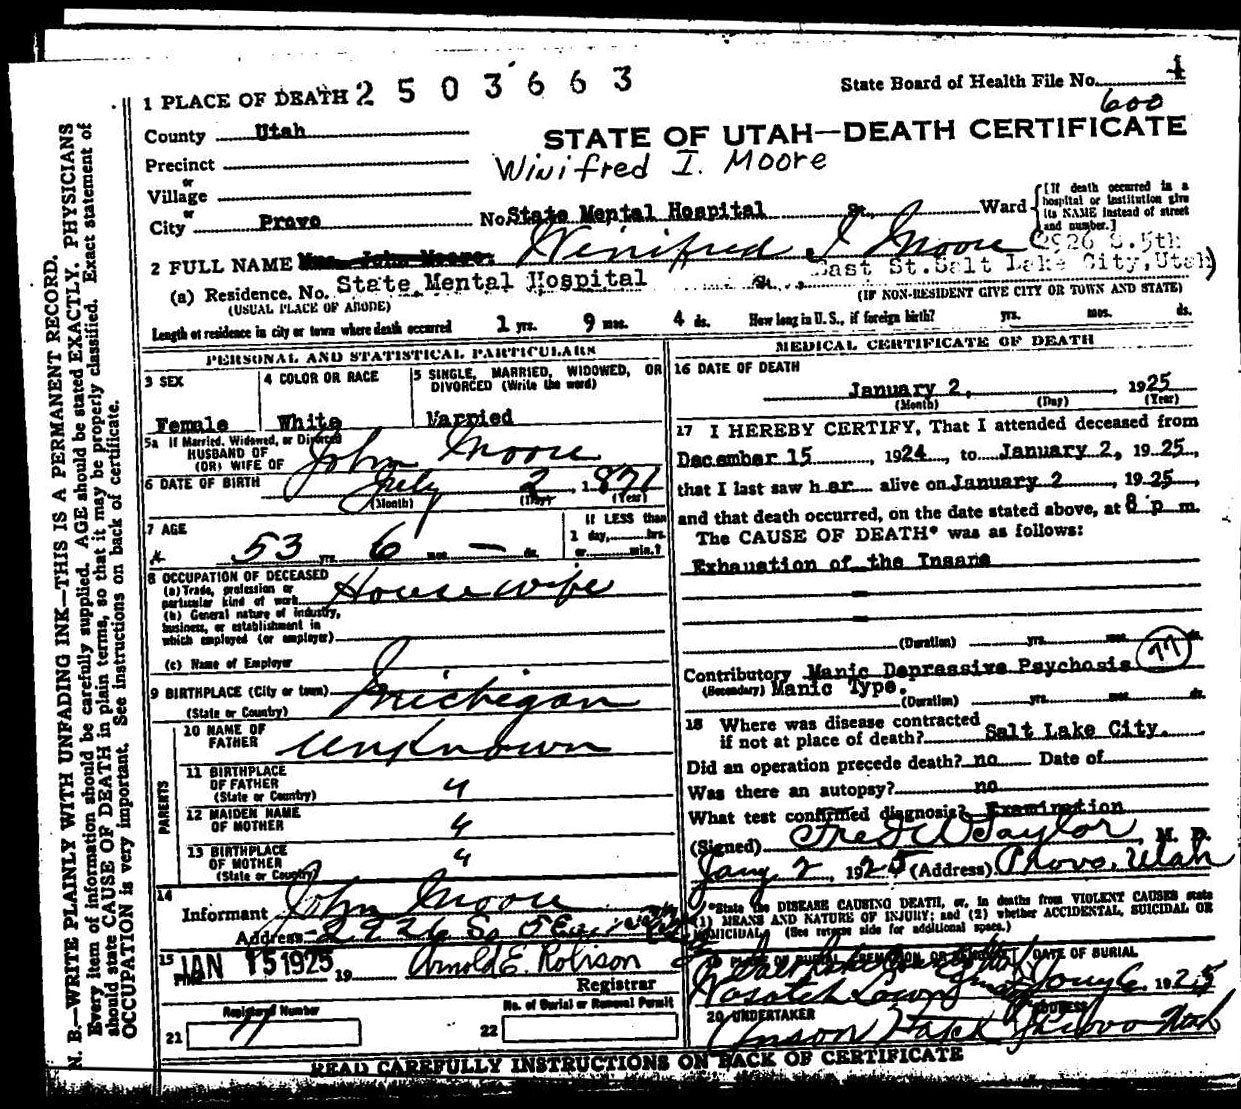 2 5 0 3 6 6 3
State Board of Health File No. 4
600
1 PLACE OF DEATH
County Utah
STATE OF UTAH—DEATH CERTIFICATE
Precinct
Winifred I. Moore
or
Village
or
City Provo No. State Mental Hospital St., Ward
[If death occurred in a hospital or institution give its NAME instead of street and number.]
2 FULL NAME Mrs. John Moore. Winifred I Moore
(2926 S. 5th
East St. Salt Lake City, Utah)
(a) Residence. No. State Mental Hospital St.,
(USUAL PLACE OF ABODE) (IF NON-RESIDENT GIVE CITY OR TOWN AND STATE)
Length of residence in city or town where death occurred 1 yrs. 9 mos. 4 ds. How long in U. S., if foreign birth? yrs. mos. ds.
PERSONAL AND STATISTICAL PARTICULARS
3 SEX
Female
4 COLOR OR RACE
White
5 SINGLE, MARRIED, WIDOWED, OR
DIVORCED (Write the word)
Married
5a If Married, Widowed, or Divorced
HUSBAND OF
(OR) WIFE OF John Moore
6 DATE OF BIRTH July 2, 1871
(Month) (Day) (Year)
7 AGE
53 yrs. 6 mos. — ds.
If LESS than
1 day, hrs.
or min.?
8 OCCUPATION OF DECEASED
(a) Trade, profession or
particular kind of work House wife
(b) General nature of industry,
business, or establishment in
which employed (or employer)
(c) Name of Employer
9 BIRTHPLACE (City or town)
(State or Country) Michigan
PARENTS
10 NAME OF
FATHER Unknown
11 BIRTHPLACE
OF FATHER "
(State or Country)
12 MAIDEN NAME
OF MOTHER "
13 BIRTHPLACE
OF MOTHER "
(State or Country)
14
Informant John Moore
Address 2926 So 5 East
15
Filed JAN 15 1925 19 Arnold E. Robison
Registrar
Registered Number
21 11
No. of Burial or Removal Permit
22
MEDICAL CERTIFICATE OF DEATH
16 DATE OF DEATH
January 2, 1925
(Month) (Day) (Year)
17 I HEREBY CERTIFY, That I attended deceased from
December 15, 1924, to January 2, 1925,
that I last saw her alive on January 2, 1925,
and that death occurred, on the date stated above, at 8 p m.
The CAUSE OF DEATH* was as follows:
Exhaustion of the Insane
(Duration) yrs. mos. ds.
77
Contributory Manic Depressive Psychosis
(Secondary) Manic Type.
(Duration) yrs. mos. ds.
18 Where was disease contracted
if not at place of death? Salt Lake City.
Did an operation precede death? no Date of
Was there an autopsy? no
What test confirmed diagnosis? Examination
(Signed) Fred W Taylor M. D.
Jany 2, 1925 (Address) Provo, Utah
*State the DISEASE CAUSING DEATH, or, in deaths from VIOLENT CAUSES state
(1) MEANS AND NATURE OF INJURY; and (2) whether ACCIDENTAL, SUICIDAL OR
HOMICIDAL. (See reverse side for additional space.)
19 PLACE OF BURIAL, CREMATION, OR REMOVAL DATE OF BURIAL
Wasatch Lawn Jany 6, 1925
20 UNDERTAKER ADDRESS
Anson Hatch Provo Utah
READ CAREFULLY INSTRUCTIONS ON BACK OF CERTIFICATE
N. B.—WRITE PLAINLY WITH UNFADING INK—THIS IS A PERMANENT RECORD.
Every item of information should be carefully supplied. AGE should be stated EXACTLY. PHYSICIANS
should state CAUSE OF DEATH in plain terms, so that it may be properly classified. Exact statement of
OCCUPATION is very important. See instructions on back of certificate.